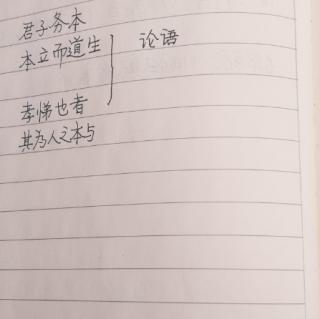 君子务本
本立而道生
论语
孝悌也者
其为人之本与